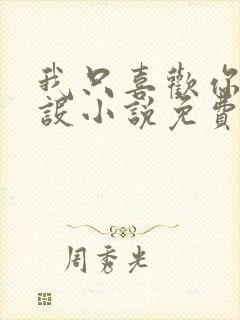 我只喜歡你
設小說免費
周秀光